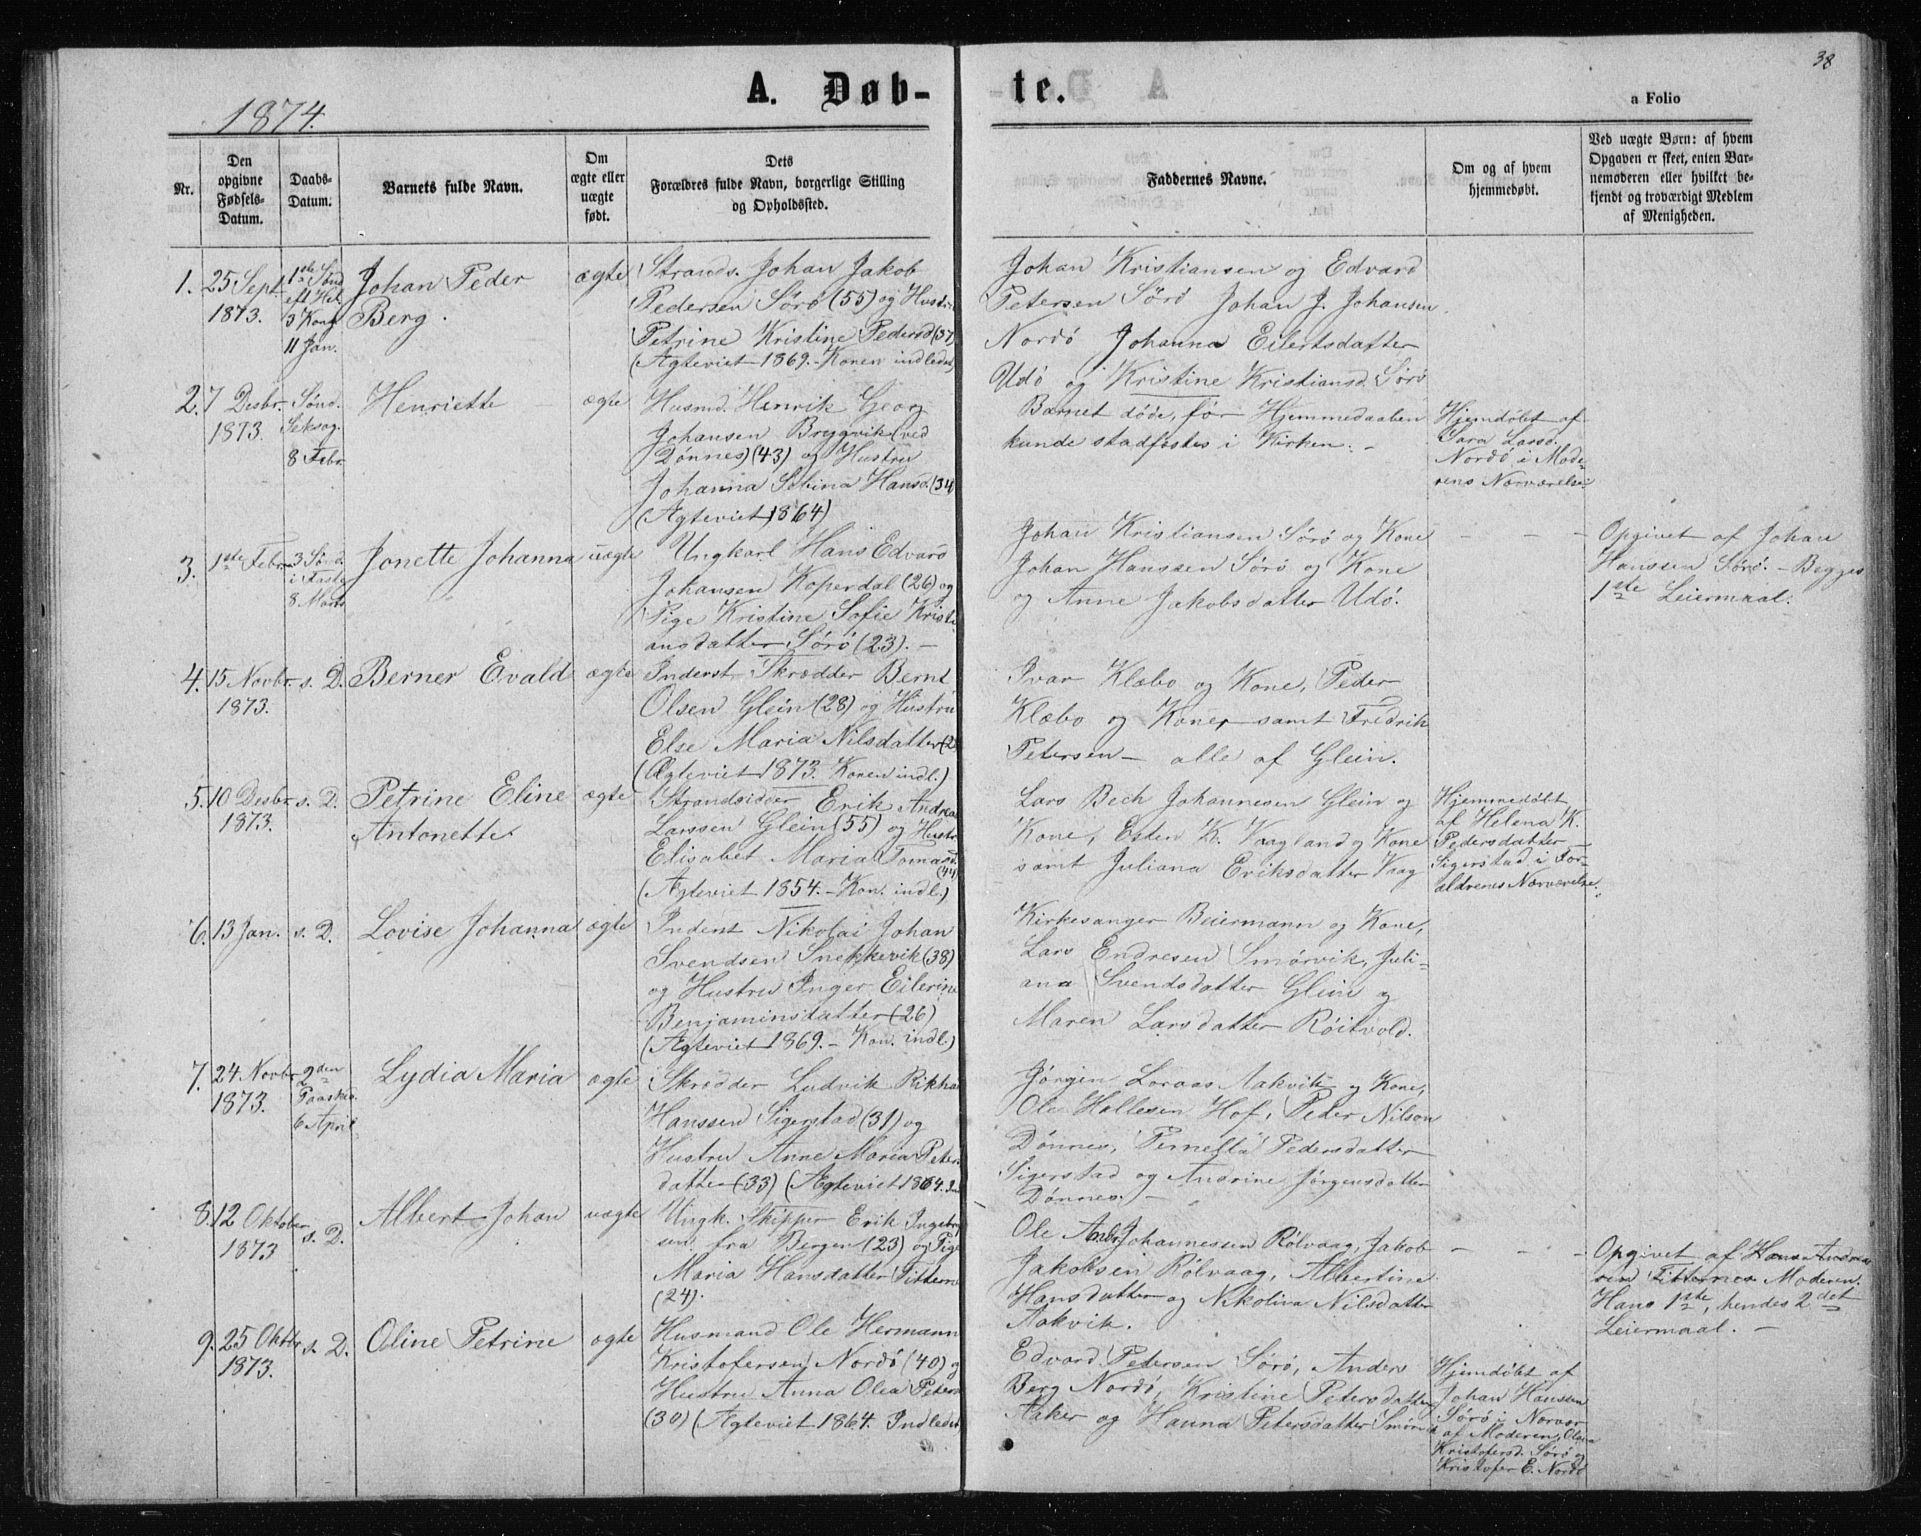 38
A. Døb-
te.
a Folio
1874.
Nr.
Den opgivne Fødsels-Datum.
Daabs-Datum.
Barnets fulde Navn.
Om ægte eller uægte født.
Dets Forældres fulde Navn, borgerlige Stilling og Opholdssted.
Faddernes Navne.
Om og af hvem hjemmedøbt.
Ved uægte Børn: af hvem Opgaven er skeet, enten Barnemoderen eller hvilket bekjendt og troværdigt Medlem af Menigheden.
1.
25 Sept.
1873.
1ste Sønd
eft Hel.
3 Kong
11 Jan.
Johan Peder
Berg.
ægte
Strands. Johan Jakob
Pedersen Sørö (55) og Hustru
Petrine Kristine Pedersd (37)
(Ægteviet 1869. Konen indledet
Johan Kristiansen og Edvard
Petersen Sørö Johan J. Johansen
Nordö, Johanna Eilertsdatter
Udö og Kristine Kristiansd. Sørö
2.
7 Desbr.
1873.
Sønd.
Seksag.
8 Febr.
Henriette
ægte
Husmd. Henrik Georg
Johansen Brygvik (ved
Dønnes) (43) og Hustru
Johanna Sebina Hansd. (34)
(Ægteviet 1864)
Barnet döde, för Hjemmedaaben
kunde stadfæstes i Kirken. -
Hjemdöbt af
Sara Lassd.
Nordö i Mode-
rens Nærværelse.
3.
1ste Febr.
3 Sønd.
i Faste
8 Marts
Jonette Johanna
uægte
Ungkarl Hans Edvard
Johansen Koperdal (26) og
Pige Kristine Sofie Kristi
ansdatter Sørö (23). -
Johan Kristiansen Sørö og Kone
Johan Hanssen Sørö og Kone
og Anne Jakobsdatter Udö.
- - -
Opgivet af Johan
Hanssen Sørö. - Begges
1ste Leiermaal.
4.
15 Novbr.
1873.
s. D.
Berner Evald
ægte
Inderst Skrædder Bernt
Olsen Glein (28) og Hustru
Else Maria Nilsdatter
(Ægteviet 1873. Konen indl.)
Ivar Klæbo og Kone, Peder
Klæbo og Kone, samt Fredrik
Petersen - alle af Glein.
5.
10 Desbr
1873.
s. D.
Petrine Eline
Antonette
ægte
Strandsidder Erik Andreas
Larssen Glein (55) og Hustr
Elisabet Maria Tomasd.
(44)
(Ægteviet 1854. - Kon. indl.)
Lars Bech Johannesen Glein og
Kone, Esten K. Vaagland og Kone
samt Juliana Eriksdatter Vaag
Hjemmedöbt
af Helena K.
Pedersdatter
Sigerstad i For-
ældrenes Nærværelse.
6.
13 Jan.
s. D.
Lovise Johanna
ægte
Inderst Nikolai Johan
Svendsen Snekkevik (38)
og Hustru Inger Eilerine
Benjaminsdatter (26)
(Ægteviet 1869. - Kon. indl.)
Kirkesanger Beiermann og Kone,
Lars Endresen Smörvik, Juli-
ana Svendsdatter Glein og
Maren Larsdatter Röitvold.
7.
24 Novbr
1873.
2den
Paaske.
6 April
Lydia Maria
ægte
Skrædder Ludvik Rikhar
Hanssen Sigerstad (31) og
Hustru Anne Maria Peters
datter (33) (Ægteviet 1864.
Jörgen Loraas Aakvik og Kone,
Ole Hallesen Hof, Peder Nilsen
Dönnes, Pernella Pedersdatter
Sigerstad og Andrine Jörgensdatter
Dönnes. -
8.
12 Oktober
1873
s. D.
Albert Johan
uægte
Ungk. Skipper Erik Ingebrg
sen fra Bergen (23) og Pige
Maria Hansdatter Titternes
(24).
Ole Andr. Johannessen Rölvaag, Jakob
Jakobsen Rölvaag, Albertine
Hansdatter og Nikolina Nilsdatter
Aakvik.
- - -
Opgivet af Hans Andrea
sen Titternes Moderen.
Hans 1ste, hendes 2det
Leiermaal. -
9.
25 Oktbr
1873.
s. D.
Oline Petrine
ægte
Husmand Ole Hermann
Kristofersen Nordö (40) og
Hustru Anna Olea Peters
(30) (Ægteviet 1864. Indledet
Edvard Petersen Sörö, Anders
Berg Nordö, Kristine Petersdatter
Aaker og Hanna Petersdatter Smörvik
Hjemdöbt af
Johan Hansen
Sörö i Nærvær
af Moderen, Olava
Kristofersd. Sörö og
Kristofer E. Nordö